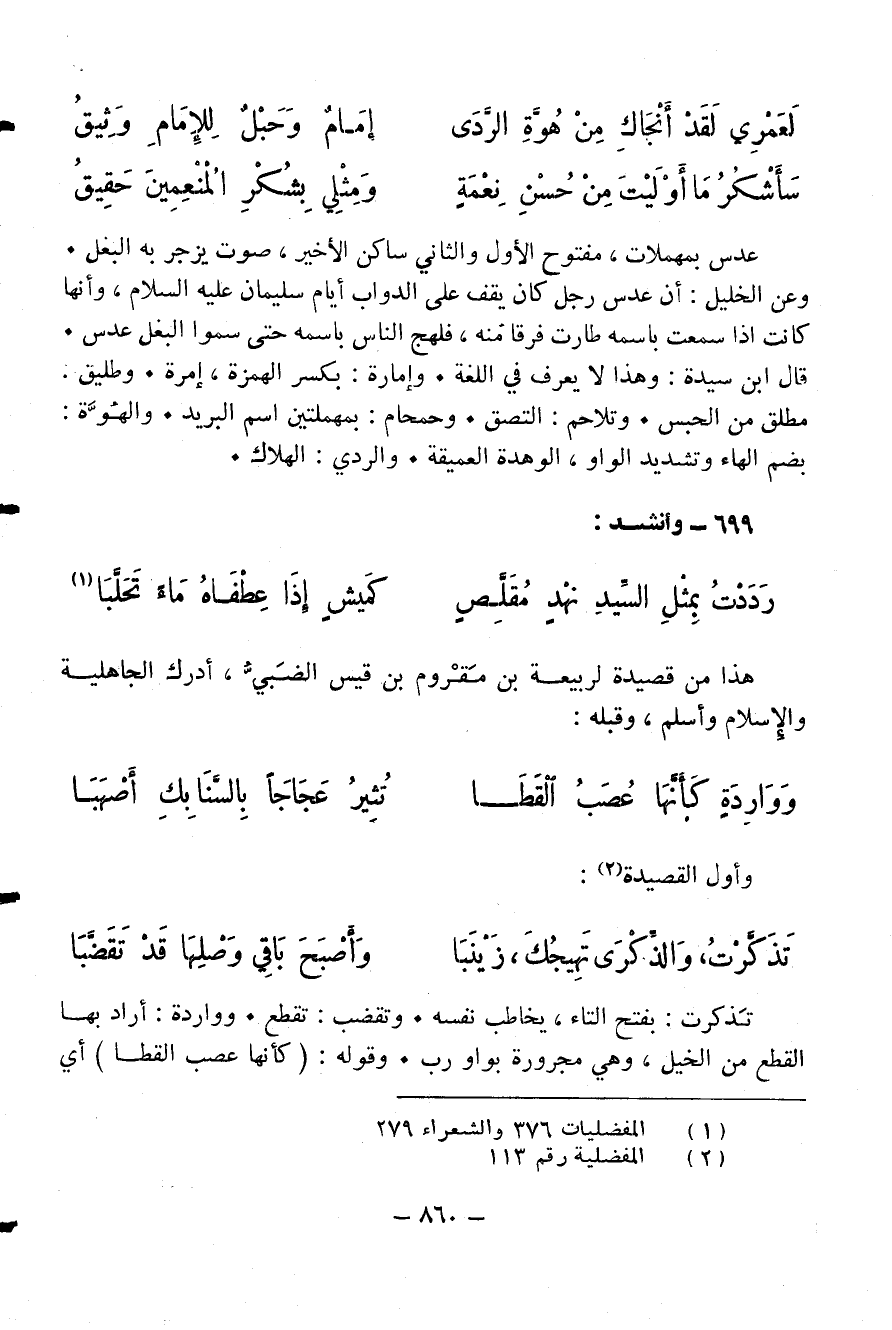 لَعَمْرِي لَقَدْ أَنْجَاكِ مِنْ هُوَّةِ الرَّدَى    إمَـامٌ وَحَبْلٌ لِلإِمَامِ وَثِيقُ
سَأَشْكُرُ مَا أَوْلَيْتَ مِنْ حُسْنِ نِعْمَةٍ    وَمِثْلِي بِشُكْرِ الْمُنْعِمِينَ حَقِيقُ
عدس بمهملات ، مفتوح الأول والثاني ساكن الأخير ، صوت يزجر به البغل •
وعن الخليل : أن عدس رجل كان يقف على الدواب أيام سليمان عليه السلام ، وأنها
كانت اذا سمعت باسمه طارت فرقا منه ، فلهج الناس باسمه حتى سموا البغل عدس •
قال ابن سيدة : وهذا لا يعرف في اللغة • وإمارة : بكسر الهمزة ، إمرة • وطليق :
مطلق من الحبس • وتلاحم : التصق • وحمحام : بمهملتين اسم البريد • والهُوَّة :
بضم الهاء وتشديد الواو ، الوهدة العميقة • والردي : الهلاك •
٦٩٩ – وأنشـد :
رَدَدْتُ بِمْثلِ السِّيدِ نَهْدٍ مُقَلَّـصٍ    كَمِيشٍ إِذَا عِطْفَـاهُ مَاءً تَحَلَّبَا(١)
هذا من قصيدة لربيعــة بن مَقْروم بن قيس الضَبي ، أدرك الجاهليـة
والإسلام وأسلم ، وقبله :
وَوَارِدَةٍ كَأَنَّهَا عُصَبُ ٱلْقَطَــــا    تُثِيرُ عَجَاجَاً بِالسَّنَابِكِ أَصْهَبَـا
وأول القصيدة(٢) :
تَذَكَّرْتُ، وَالذِّكْرَى تَهِيجُكَ، زَيْنَبَا    وَأَصْبَحَ بَاقِي وَصْلِهَا قَدْ تَقَضَّبَا
تَذكرت : بفتح التاء ، يخاطب نفسه • وتقضب : تقطع • وواردة : أراد بهـا
القطع من الخيل ، وهي مجرورة بواو رب • وقوله : ( كأنها عصب القطـا ) أي
(١) المفضليات ٣٧٦ والشعراء ٢٧٩
(٢) المفضلية رقم ١١٣
– ٨٦٠ –